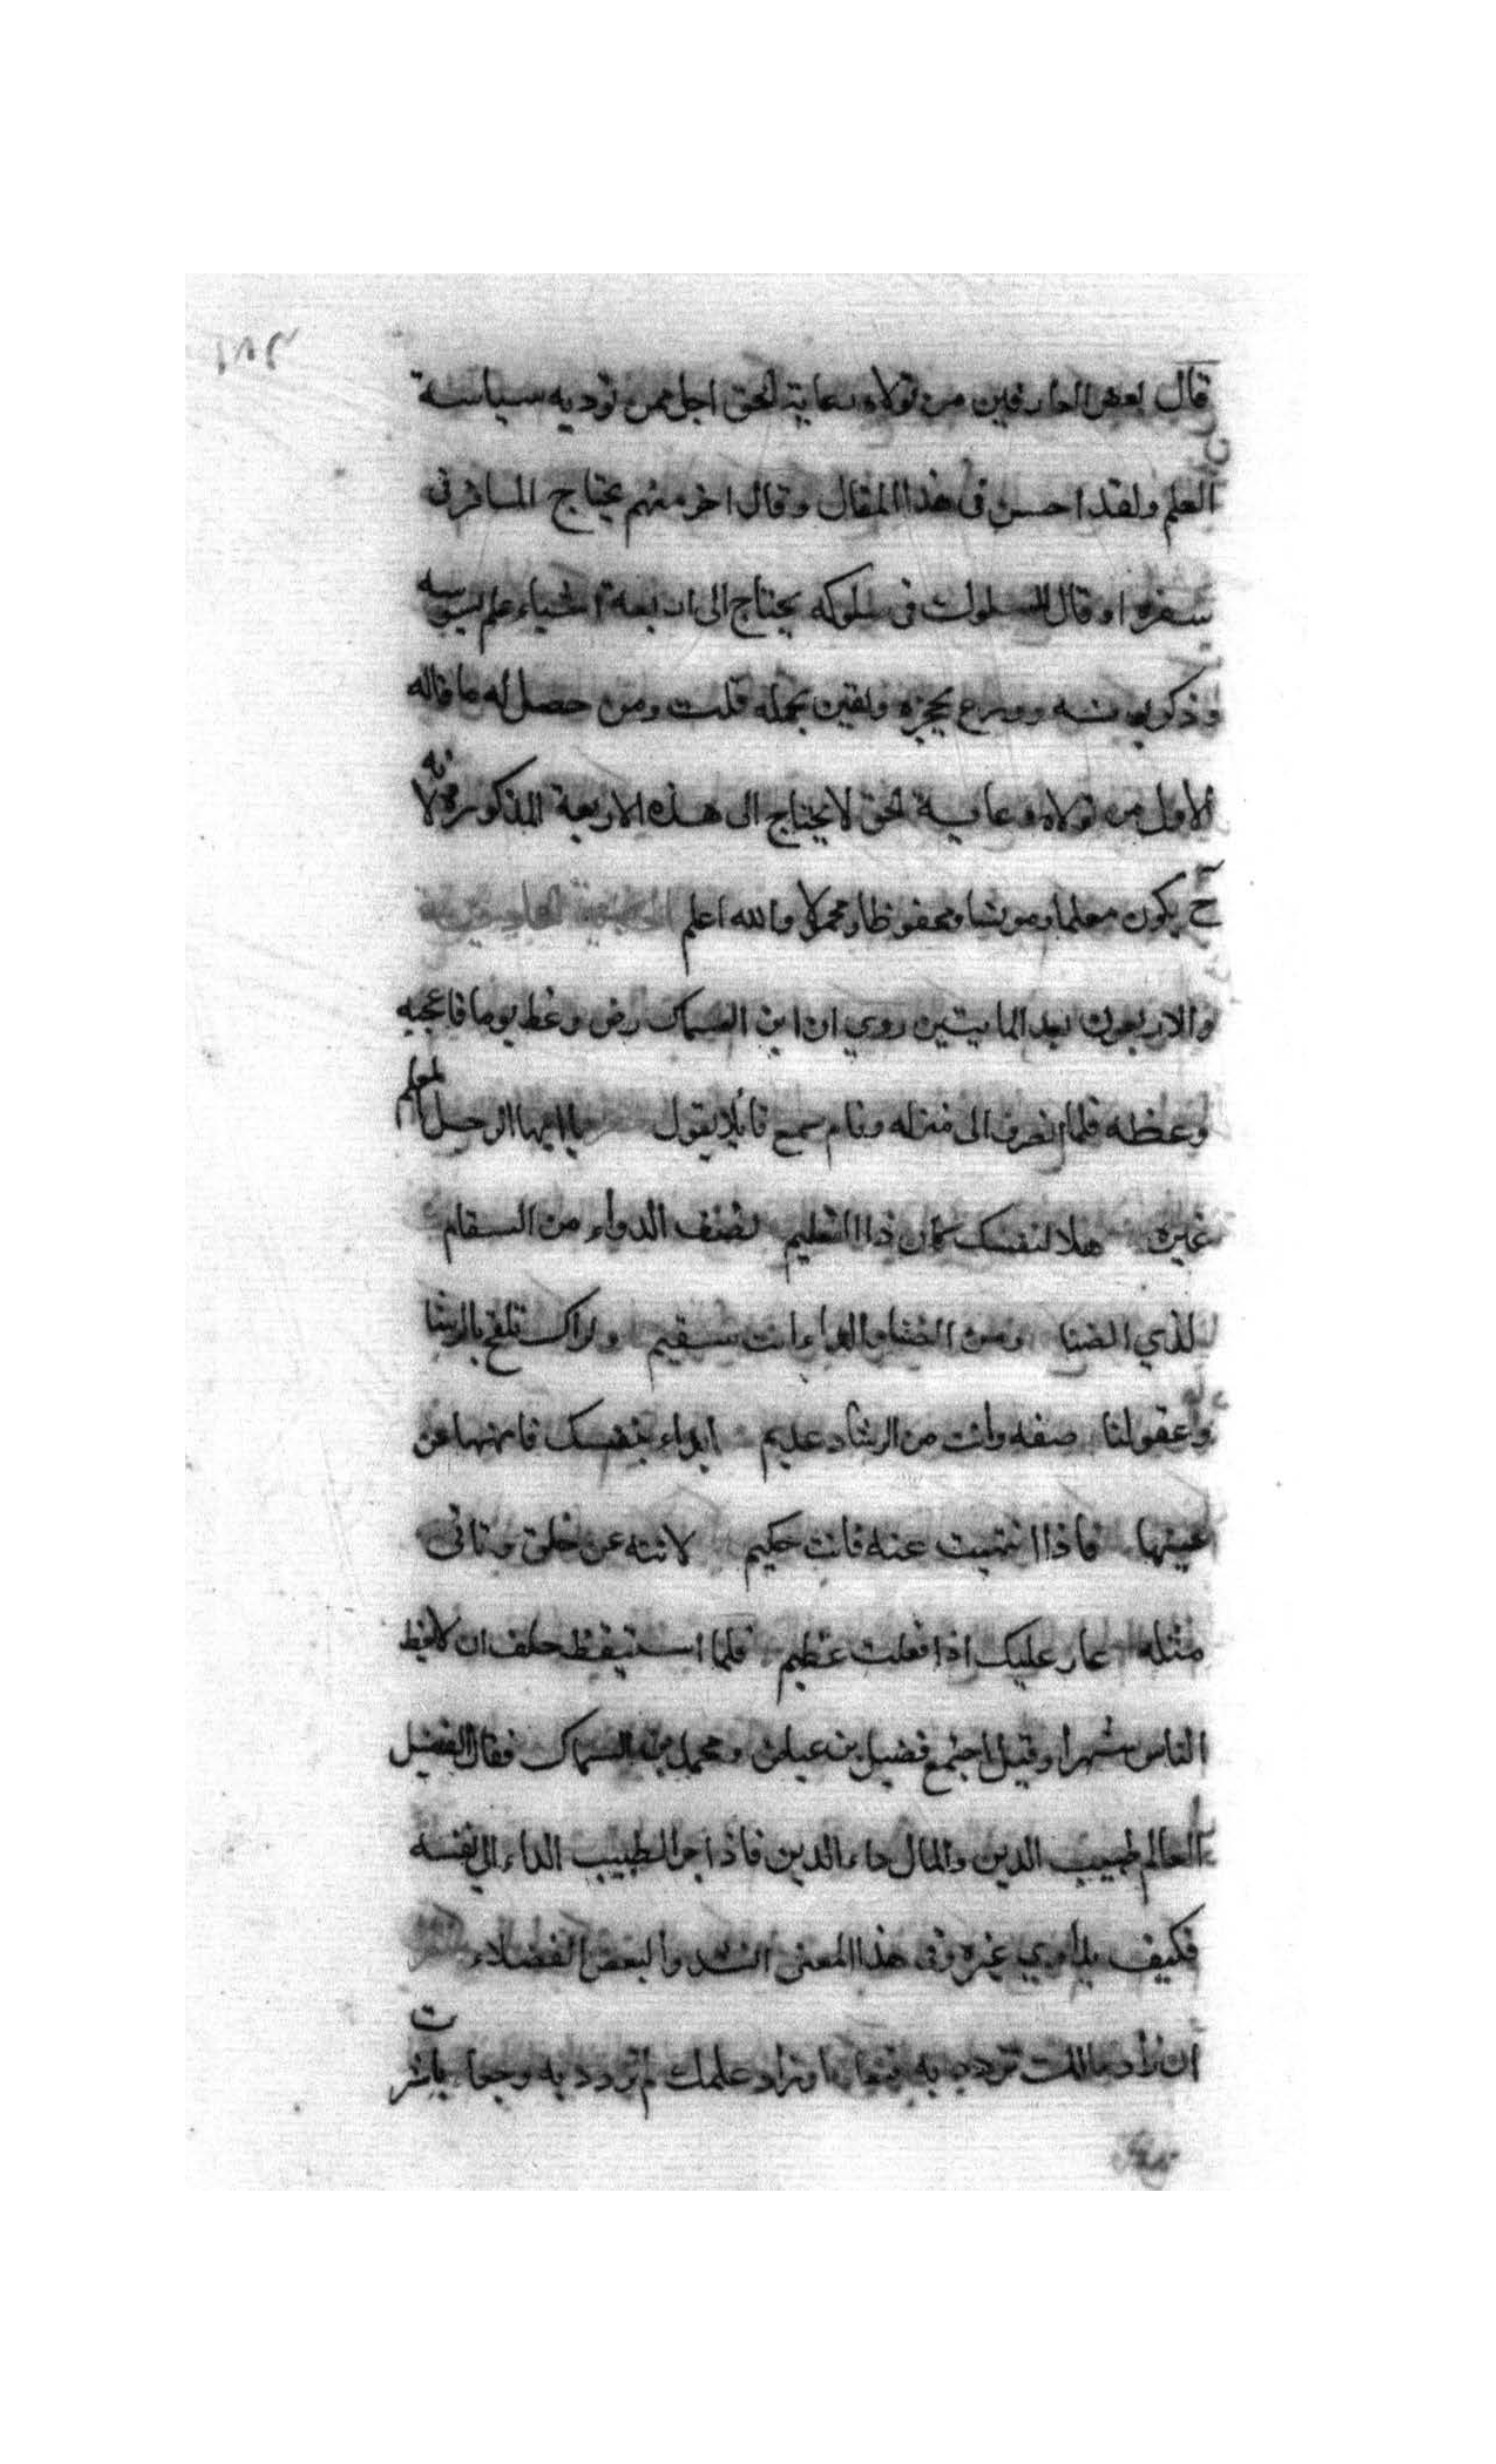 ١٨٢
قال بعض العارفين من تولاه رعاية الحق اجل ممن توديه سياسة
العلم ولقد احسن فى هذا المقال وقال اخر منهم يحتاج المسافر فى
سفره او قال السلوك فى سلوكه يحتاج الى اربعة اشياء علم يسوسه
وذكر يونسه وورع يحجزه ويقين يحمله قلت ومن حصل له ما قاله
الأول من تولاه رعاية الحق لا يحتاج الى هذه الاربعة المذكورة لانه
ح يكون معلما ومونسا ومحفوظا ومحمولا والله اعلم الحكاية الحادية
والاربعون بعد المايتين روي ان ابن السماك رض وعظ يوما فاعجبه
وعظه فلما انصرف الى منزله ونام سمع قائلا يقول يا ايها الرجل المعلم
غيره هلا لنفسك كان ذا التعليم تصف الدواء من السقام
لذي الضنا ومن الضنا والداء انت سقيم واراك تلقح بالرشاد
عقولنا صفه وانت من الرشاد عديم ابداء بنفسك فانهها عن
غيها فاذا انتهيت عنه فانت حكيم لا تنه عن خلق وتاتى
مثله عار عليك اذا فعلت عظيم فلما استيقظ حلف ان لا يعظ
الناس شهرا وقيل اجتمع فضيل بن عياض ومحمد بن السماك فقال الفضيل
العالم طبيب الدين والمال داء الدين فاذا جر الطبيب الداء الى نفسه
فكيف يداوي غيره وفى هذا المعنى انشدوا لبعض الفضلاء شعر
ان زاد مالك تزدد به وزاد علمك لم تزدد به وجعا